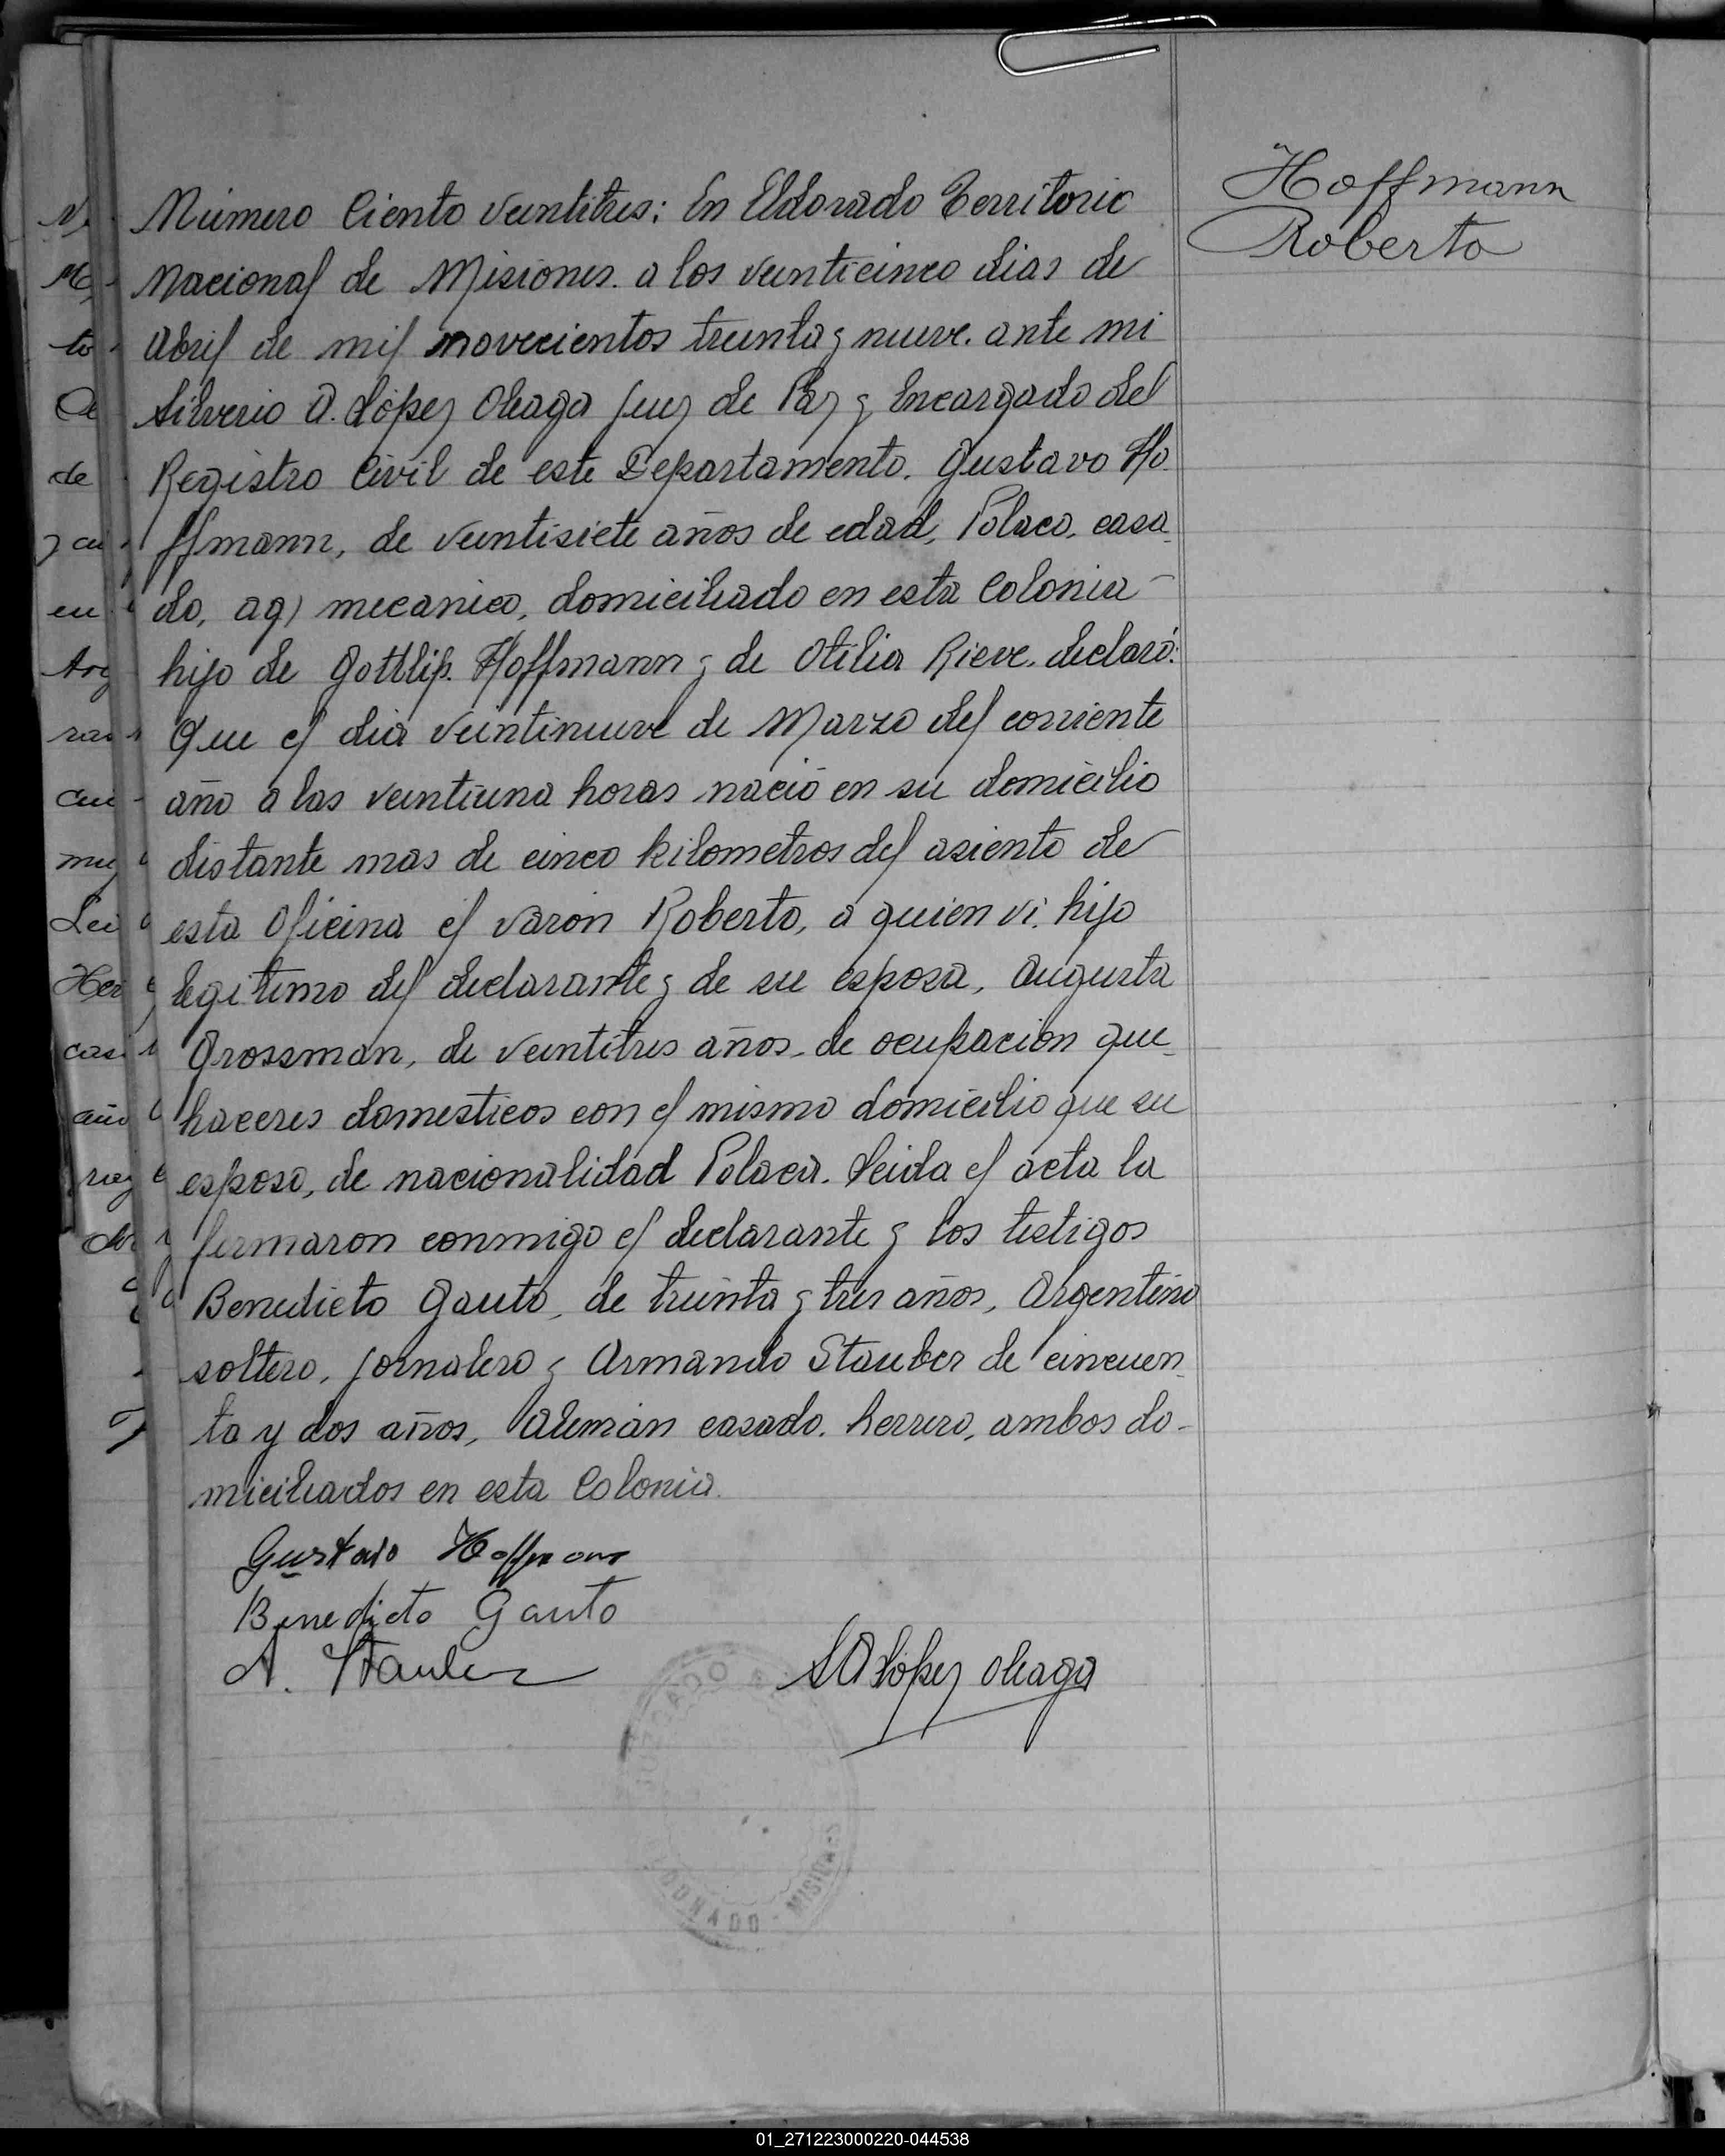 Hoffmann
Roberto
Número Ciento Veintitres: En Eldorado Territorio
Nacional de Misiones. a los veinticinco dias de
Abril de mil novecientos treinta y nueve. ante mi
Silverio A. López Oleaga Juez de Paz y Encargado del
Registro Civil de este Departamento. Gustavo Ho
ffmann, de veintisiete años de edad, Polaco, casa
do, mecanico, domiciliado en esta Colonia -
hijo de Gottlip. Hoffmann y de Otilia Rieve. declaró:
Que el dia veintinueve de Marzo del corriente
año a las veintiuna horas nació en su domicilio
distante mas de cinco kilometros del asiento de
esta Oficina el varón Roberto, a quien vi. hijo
legitimo del declarante y de su esposa, Augusta
Grossman, de veintitres años. de ocupación que_
haceres domesticos con el mismo domicilio que su
esposo, de nacionalidad Polaca. Leida el acta la
firmaron conmigo el declarante y los testigos
Benedicto Gauto, de treinta y tres años, Argentino
soltero, jornalero y Armando Stauber de cincuen_
ta y dos años, Alemán casado. herrero, ambos do-
miciliados en esta Colonia.
Gustavo Hoffmann
Benedicto Gauto
A. Stauber
S A López Oleaga
JUZGADO
ELDORADO - MISIONES
01_271223000220-044538